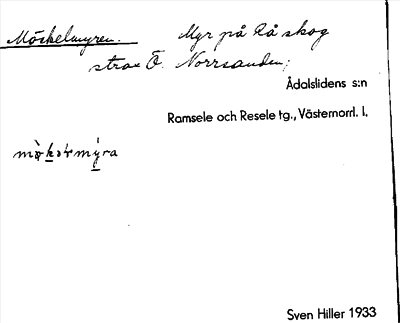 Möckelmyren. Myr på Rå skog
strax Ö. Norrsanden;
Ådalslidens s:n
Ramsele och Resele tg., Västernorrl. l.
Sven Hiller 1933